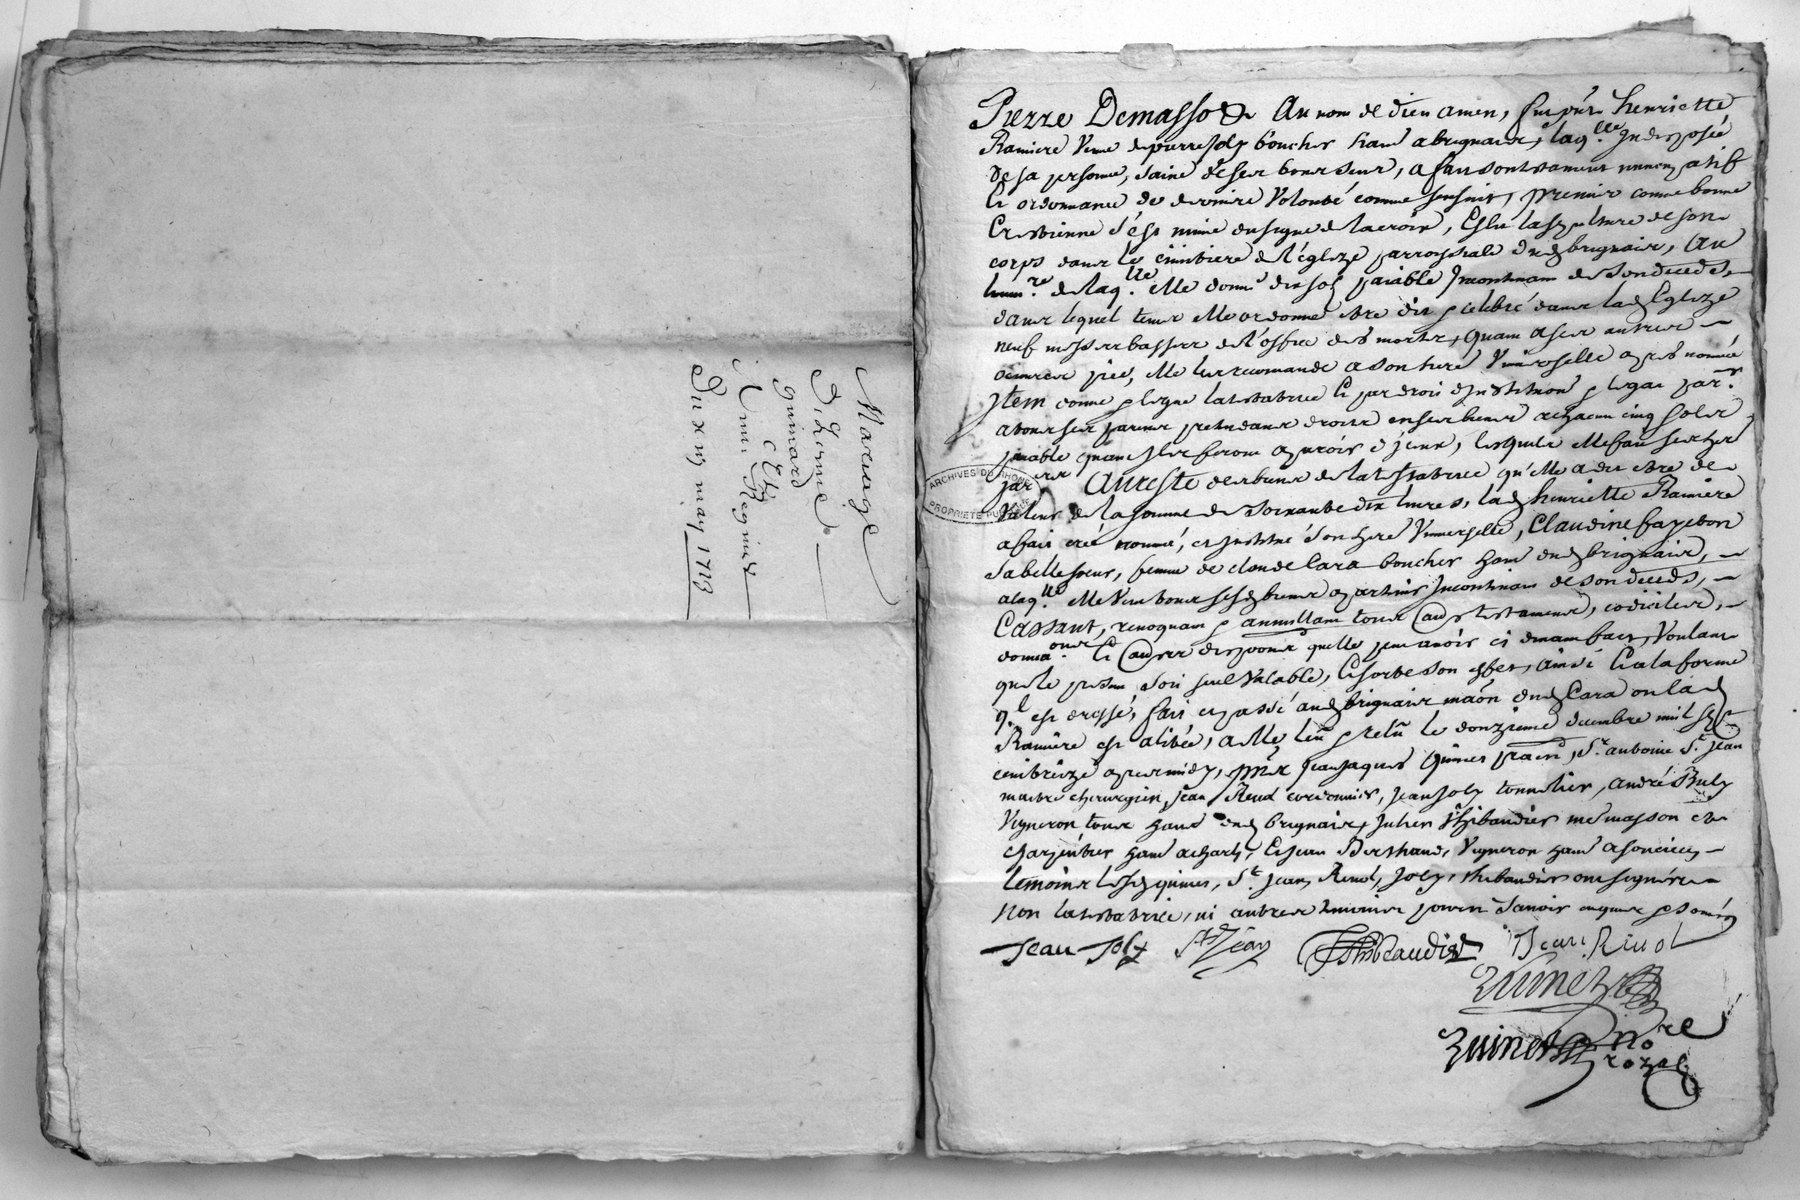 Mariage
d'Etienne
guimard
& Cl
Regnier
Du xiij may 1713
Pierre Demasso & Au nom de dieu amen, fut pnte henriette
Ramiere veuve de pierre Joly boucher hant a brignais, laqlle Indisposée
de sa personne, saine de ses bons sens, a fait son testament nuncupatif
Et ordonnance de derniere volonté comme sensuit, premier comme bonne
Crestienne s'est munie du signe de la croix, Eslit la sepulture de son
corps dans le cimitiere de l'églize parroissiale dud brignais, Au
lumre de laqlle elle donne dix sols paiable Incontinant de son deceds,
dans lequel tems elle ordonne estre dit & celebré dans lad Eglize
neuf messes basses de l'office des morts, quant a ses autres
oeuvres pies, elle les recommande a son here universelle apres nommée
Item donne & legue la testatrice Et par droit d'institution & legat parer
a tous ses parens pretendans droits en ses biens a chacun cinq sols
paiable quant Ils se feront aparoir d'jceux, lesquels elle fait ses her
parers Au reste des biens de la testatrice qu'elle a dit estre de
valeur de la somme de soixante dix livres, lad henriette Ramiere
a fait créé nommé, et Institué son here Universelle, Claudine fayeton
sa belle soeur, femme de claude Cara boucher hant aud brignais,
a laqlle elle veut tous sesd biens apartenir Incontinant de son deceds,
Cassant, revoquant & annullant tous autres testamens, codiciles,
donnaons Et autres disp̃ons quelle peut avoir cy devant fait, Voulant
que le presant soit seul valable, Et sorte son effet, ainsi Et a la forme
ql est dressé, fait et passé aud brignais maõn dud Cara ou lad
Ramiere est alitée, a elle leu & releu le douzieme decembre mil sept
cent treize apres midy, pñs Jean Jaques Quinet praen, Sr. antoine St. Jean
maitre chirurgien, Jean Revol cordonnier, Jean Joly tonnelier, andré
Vigneron tous hant aud brignais, Julien thibaudier me masson et
charpentier hant a charly, Et Jean Berthaud, Vigneron hant a soucieu,
temoins lesd quinet, St. Jean, Revol, Joly, thibaudier ont signé
non la testatrice, ni autres temoins pour ne savoir enquis & somés
Jean Joly St Jean Thibaudier Jean Revol
Quinet
Quinet nore
royal
ARCHIVES DU RHONE
PROPRIETE PUBLIQUE